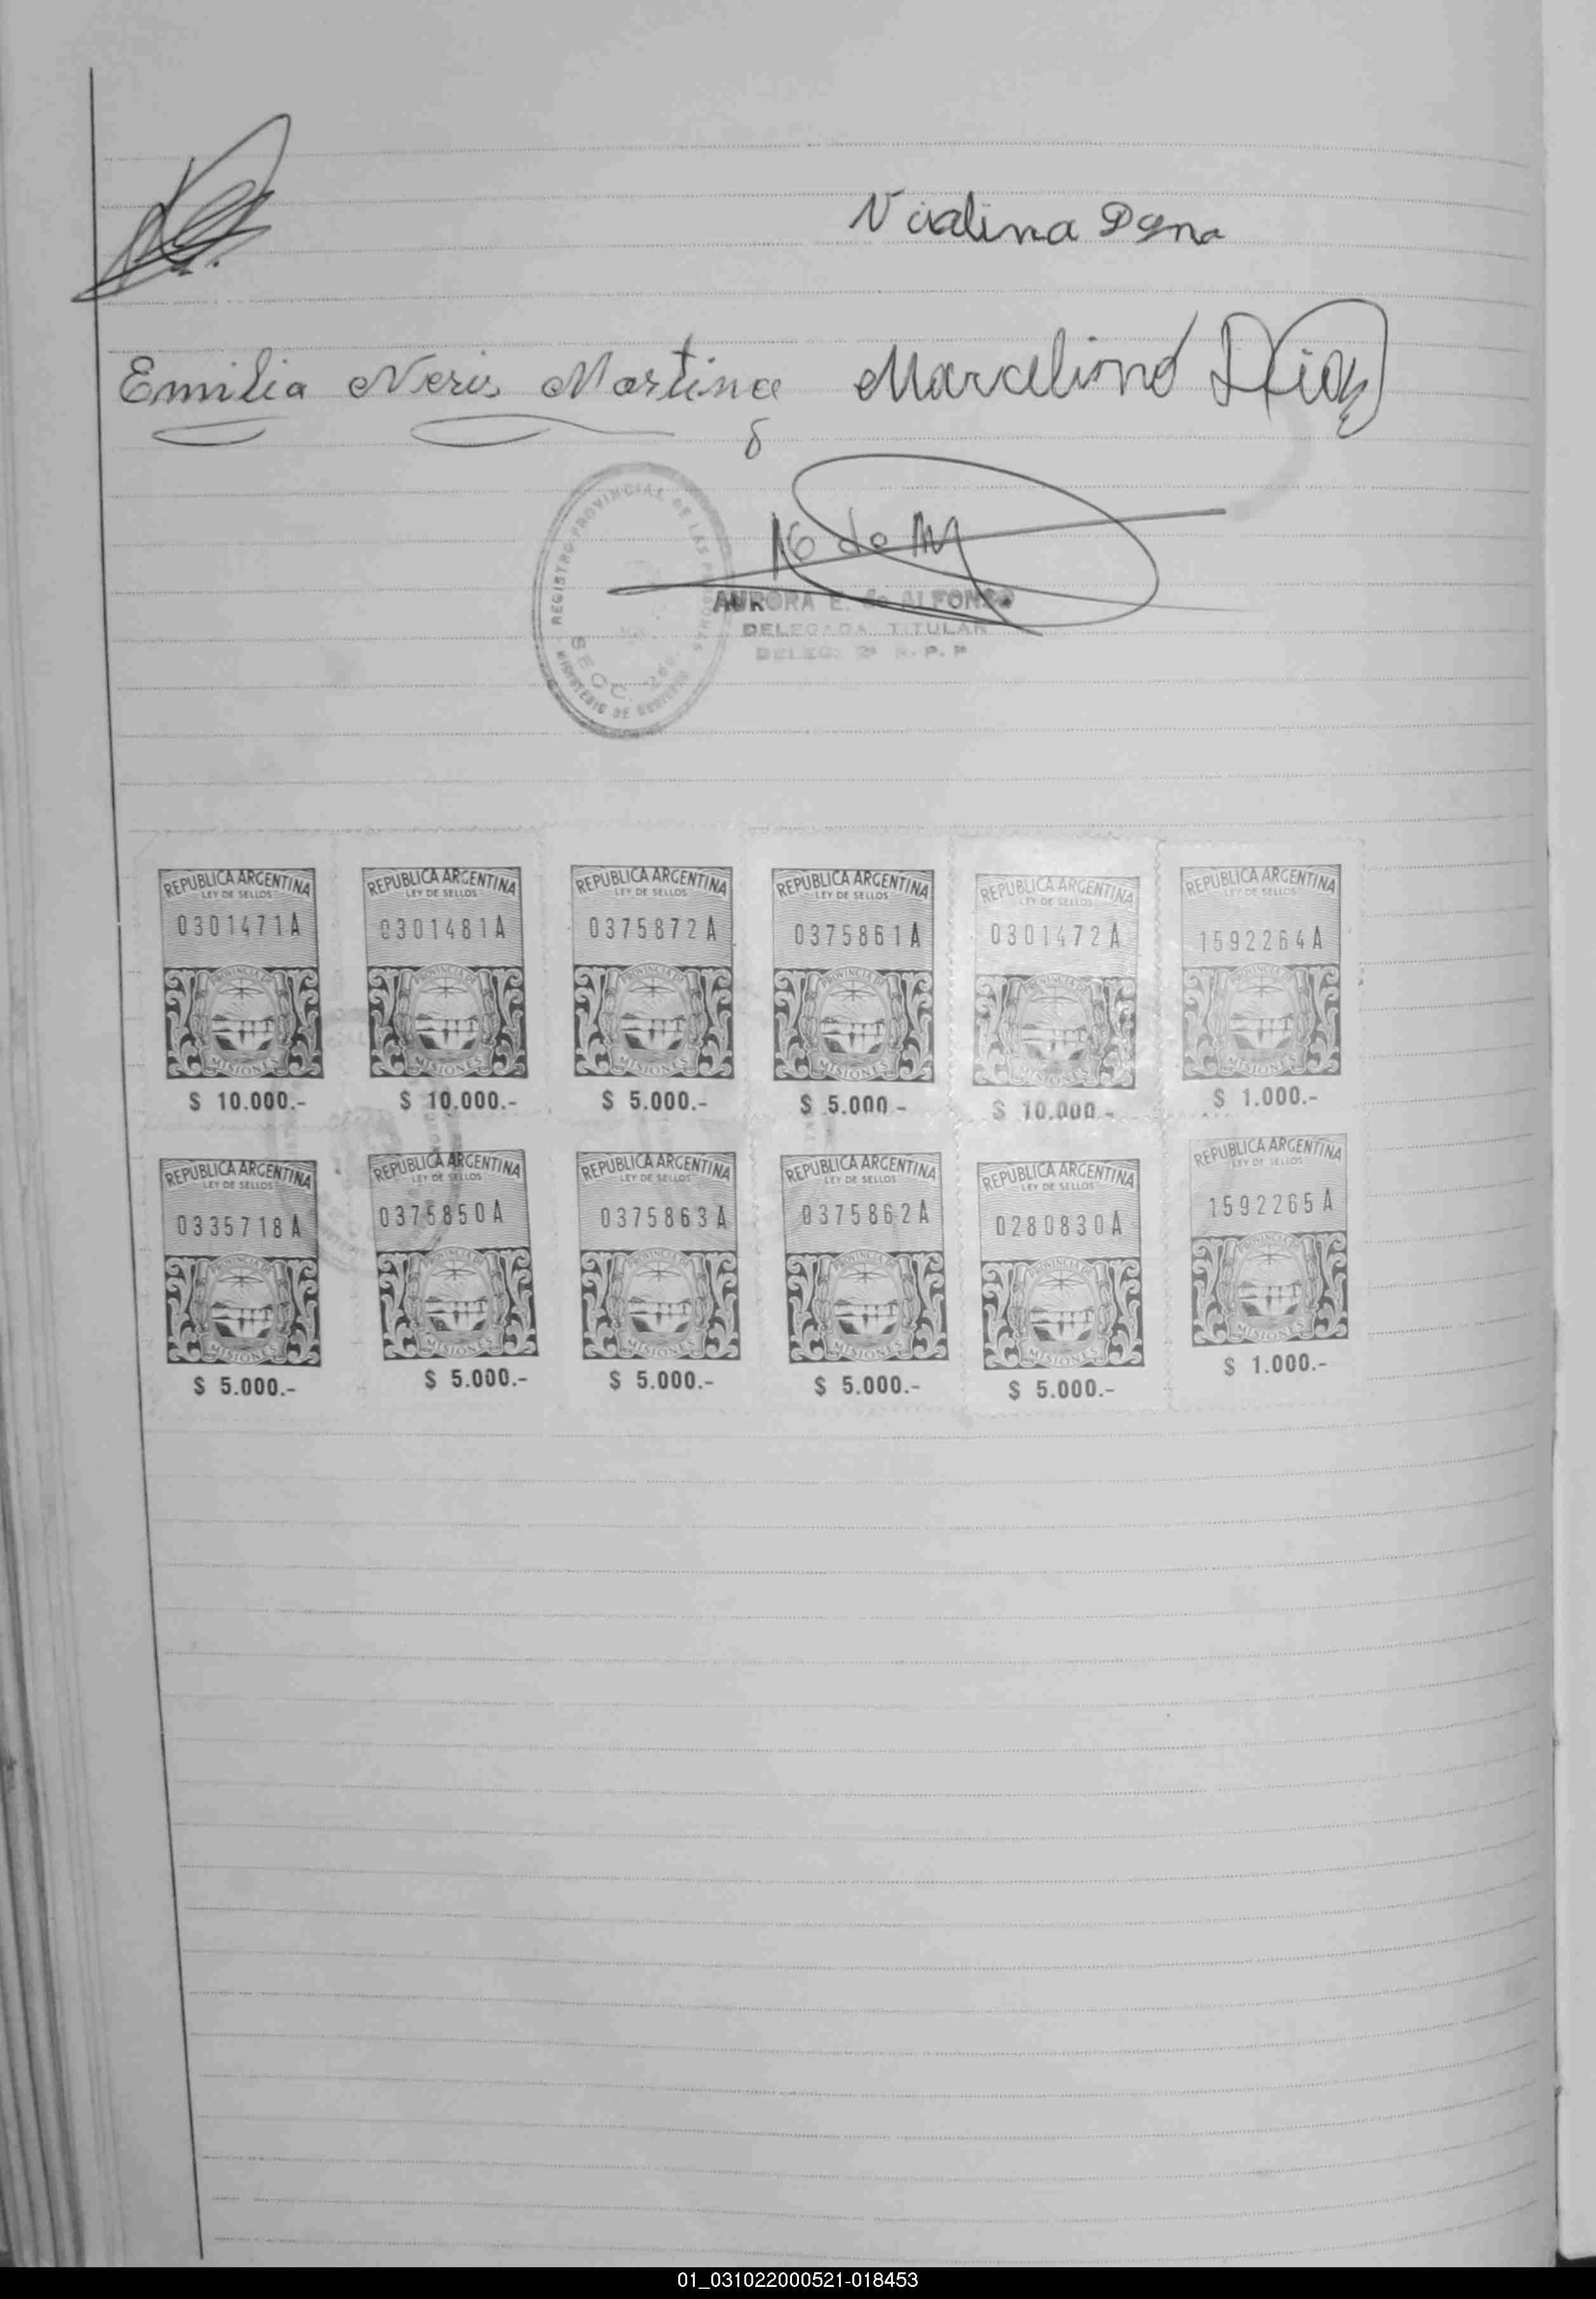 Vialina Dona
Emilia Neris Martinez Marcelino Diaz
REGISTRO PROVINCIAL DE LAS PERSONAS
SECC. 2da.
MINISTERIO DE GOBIERNO
AURORA E. de ALFONSO
DELEGADA TITULAR
DELEG. 2ª R. P. P
REPUBLICA ARGENTINA REPUBLICA ARGENTINA REPUBLICA ARGENTINA REPUBLICA ARGENTINA REPUBLICA ARGENTINA REPUBLICA ARGENTINA
LEY DE SELLOS LEY DE SELLOS LEY DE SELLOS LEY DE SELLOS LEY DE SELLOS LEY DE SELLOS
0301471A 0301481A 0375872A 0375861A 0301472A 1592264A
PROVINCIA DE PROVINCIA DE PROVINCIA DE PROVINCIA DE PROVINCIA DE PROVINCIA DE
MISIONES MISIONES MISIONES MISIONES MISIONES MISIONES
$ 10.000.- $ 10.000.- $ 5.000.- $ 5.000.- $ 10.000.- $ 1.000.-
REPUBLICA ARGENTINA REPUBLICA ARGENTINA REPUBLICA ARGENTINA REPUBLICA ARGENTINA REPUBLICA ARGENTINA REPUBLICA ARGENTINA
LEY DE SELLOS LEY DE SELLOS LEY DE SELLOS LEY DE SELLOS LEY DE SELLOS LEY DE SELLOS
0335718A 0375850A 0375863A 0375862A 0280830A 1592265A
PROVINCIA DE PROVINCIA DE PROVINCIA DE PROVINCIA DE PROVINCIA DE PROVINCIA DE
MISIONES MISIONES MISIONES MISIONES MISIONES MISIONES
$ 5.000.- $ 5.000.- $ 5.000.- $ 5.000.- $ 5.000.- $ 1.000.-
01_031022000521-018453